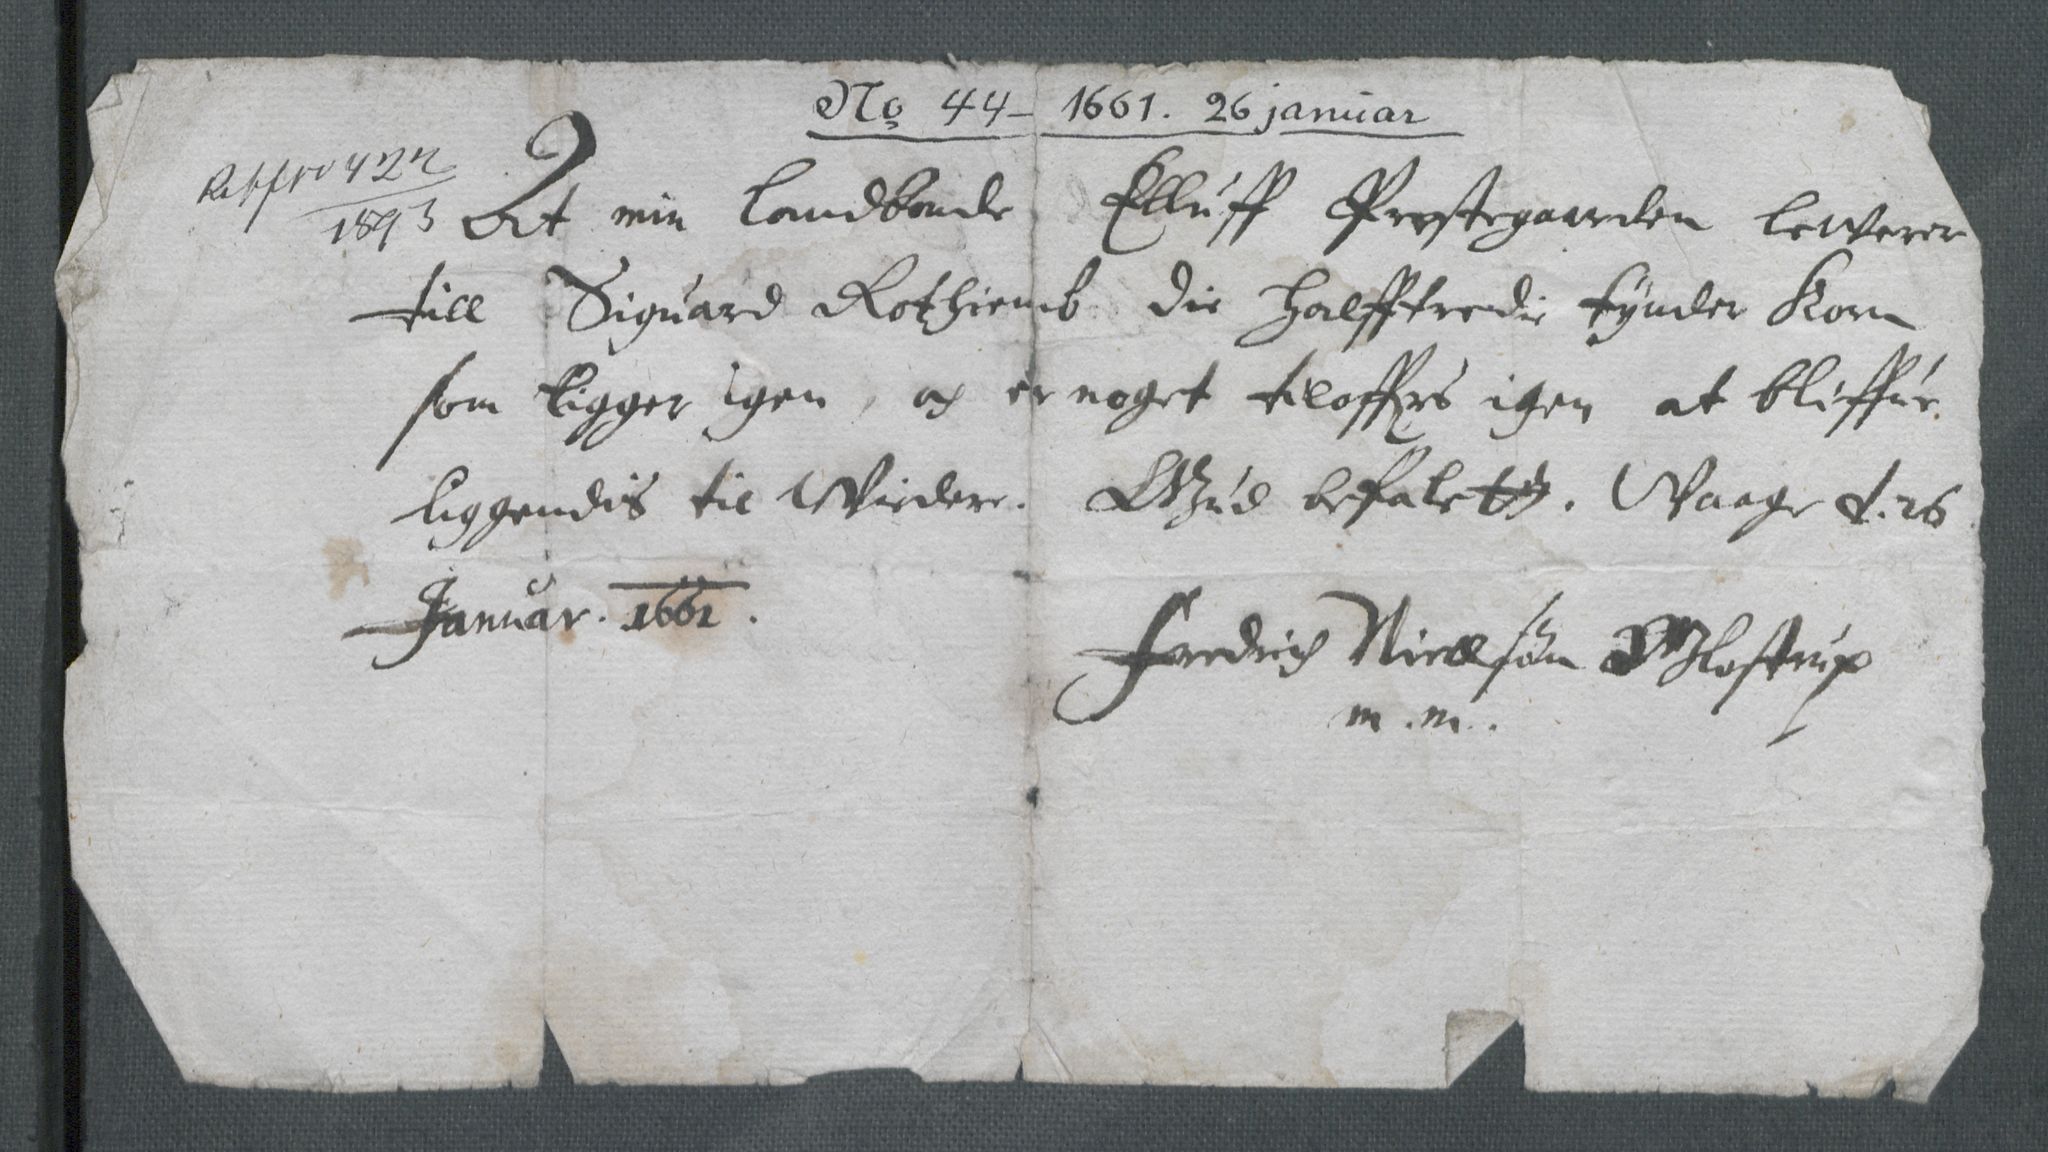 No 44 - 1661. 26 januar
422
1893
At min landbonde Elluff Prestegaarden lewerer
till Siguard Rothiemb die halfftredie tynder Korn
som ligger igen, och er noget tiloffrs igen at bliffue
liggendis til Wiedere. Gud befalet. Waage d. 26
Januar. 1661.
Fredrich Nielsøn Glostrup
m.m.